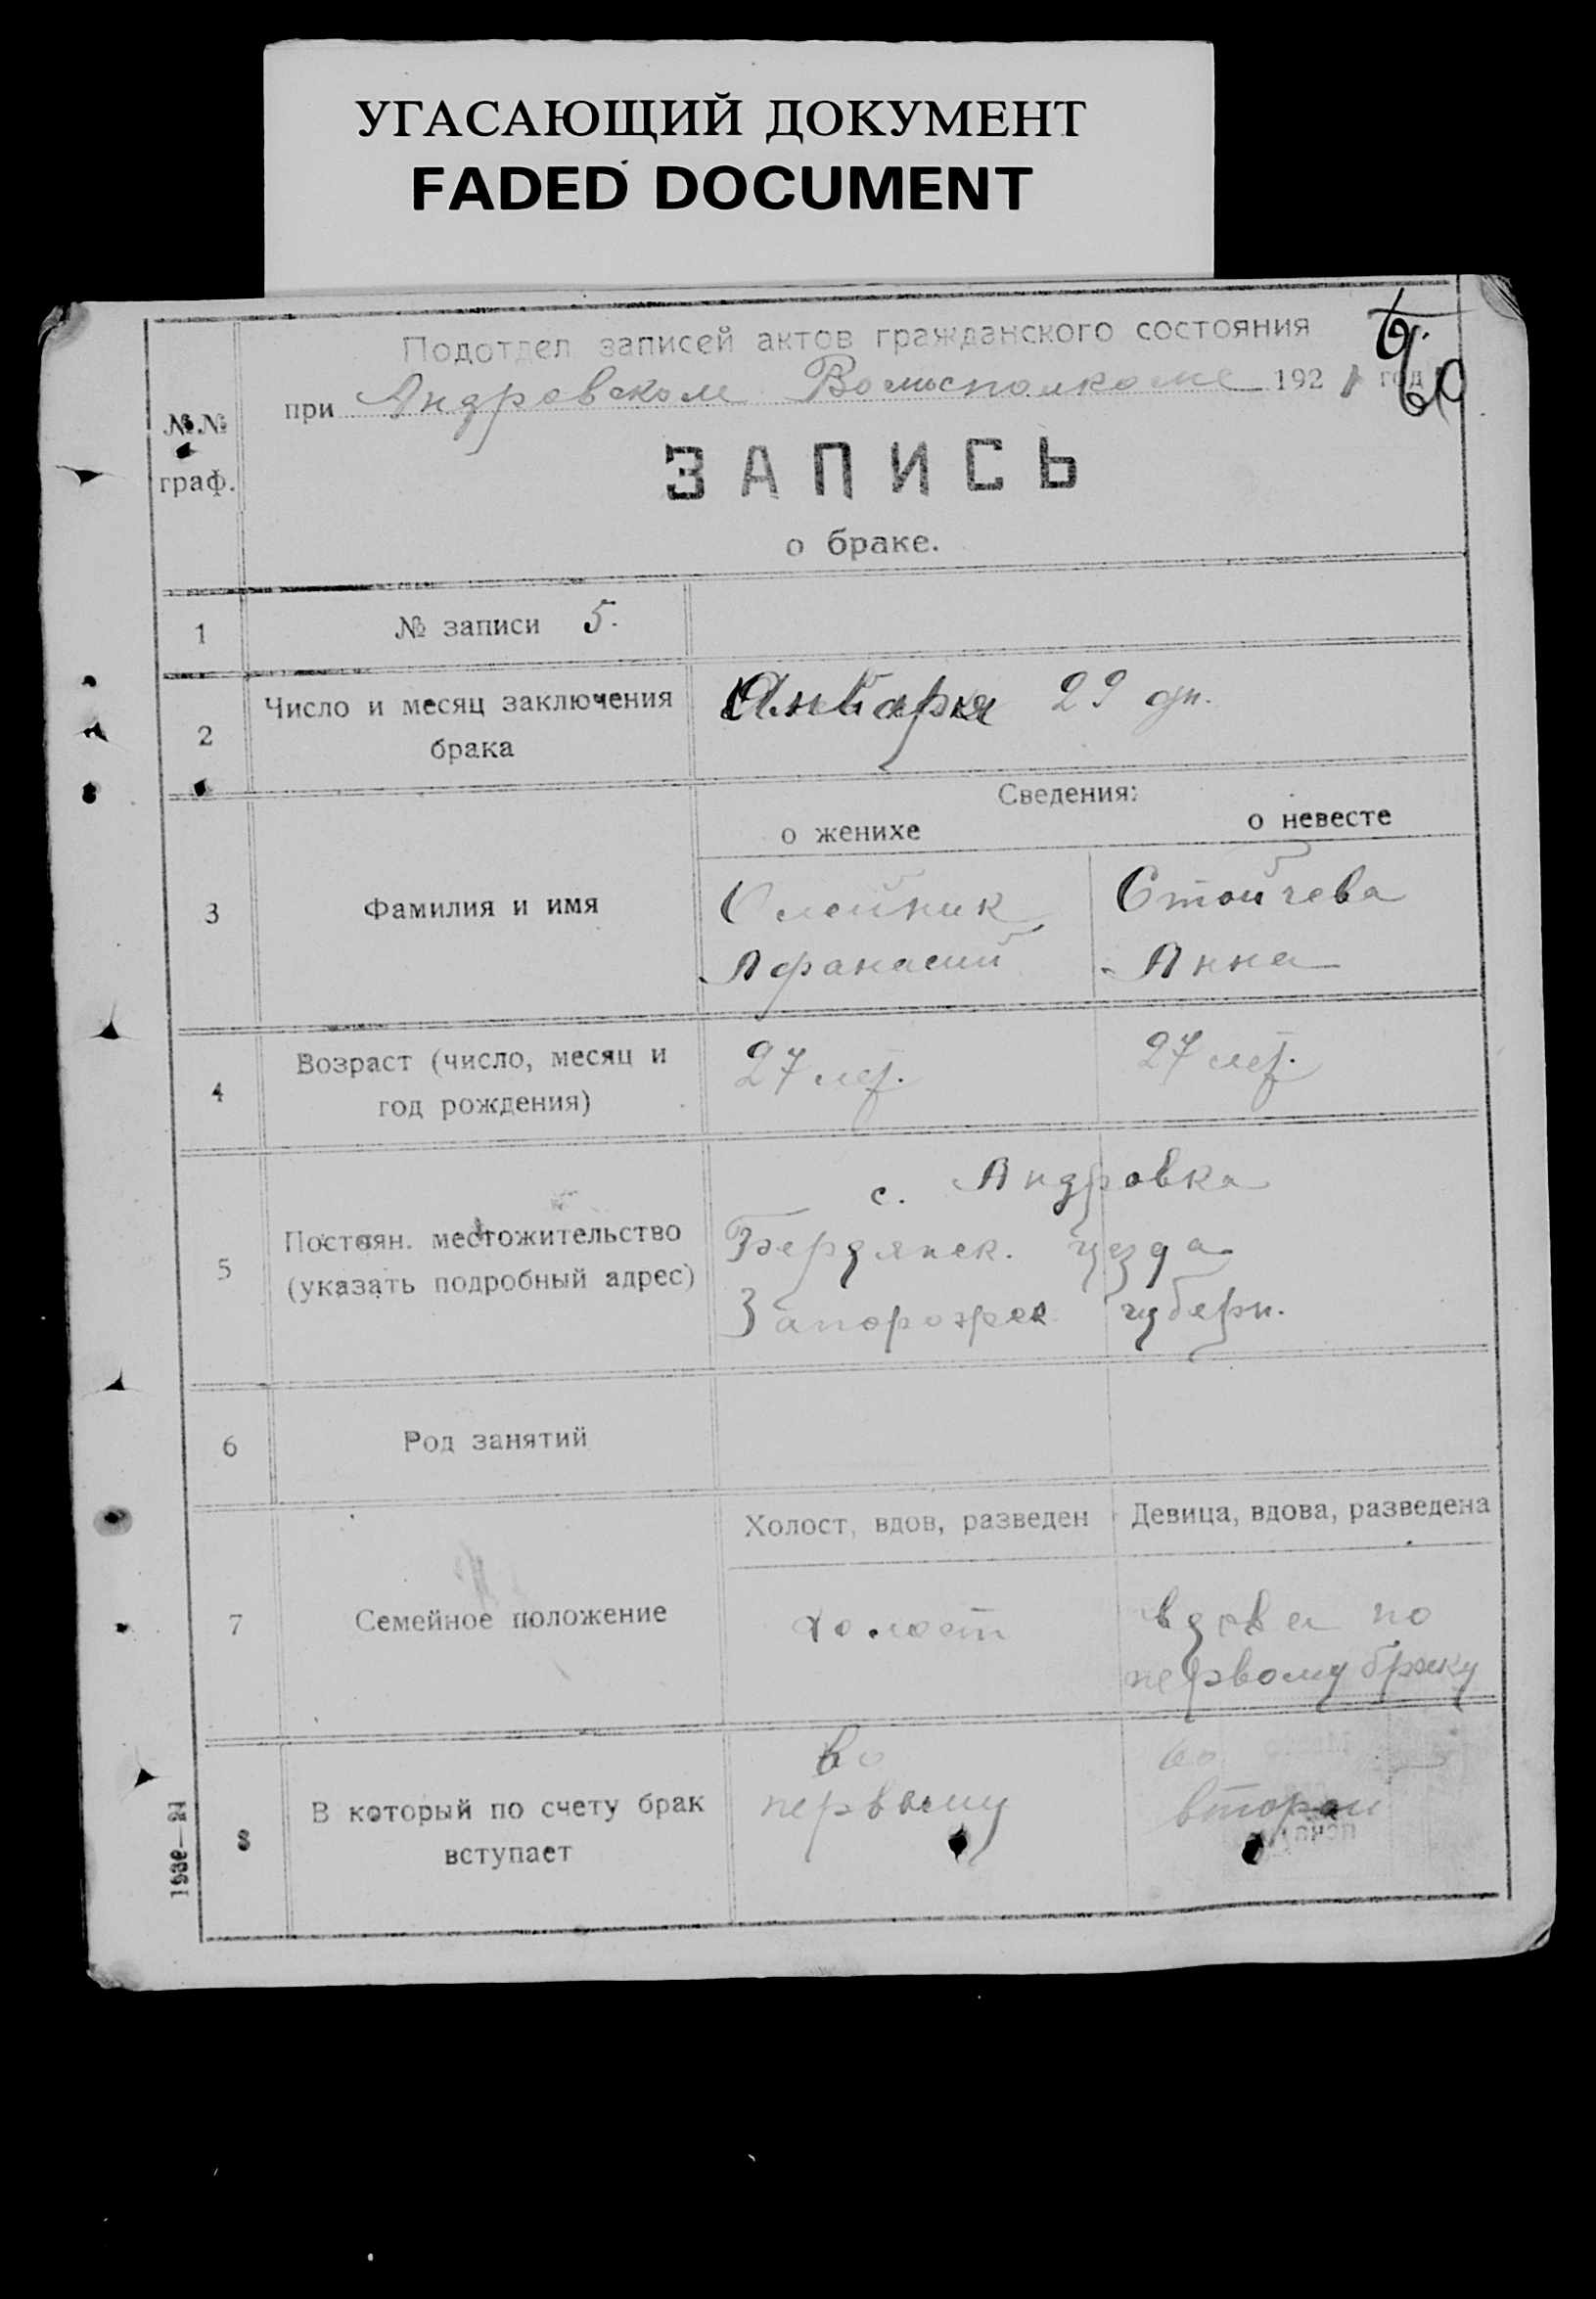 УГАСАЮЩИЙ ДОКУМЕНТ
FADED DOCUMENT
Подотдел записей актов гражданского состояния
при Андровском Волисполкоме 1921 год
№№
граф.
ЗАПИСЬ
о браке.
1 № записи 5.
2 Число и месяц заключения брака
Января 29 дн.
Сведения:
о женихе о невесте
3 Фамилия и имя
Олейник Стойчева
Афанасий Анна
4 Возраст (число, месяц и год рождения)
27 лет. 27 лет.
5 Постоян. местожительство
(указать подробный адрес)
с. Андровка
Бердянск. уезда
Запорожск губерн.
6 Род занятий
Холост, вдов, разведен Девица, вдова, разведена
7 Семейное положение
холост вдова по
первому браку
8 В который по счету брак
вступает
во во
первому второй